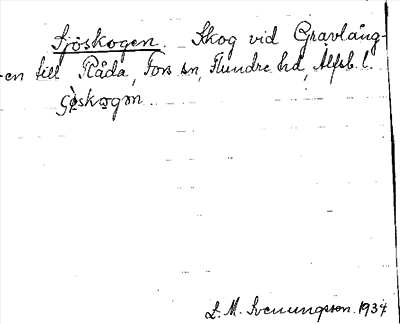 Sjöskogen. Skog vid Gravläng-
en till Råda, Fors sn, Flundre hd, Älfsb. l.
L. M. Svenungsson. 1934